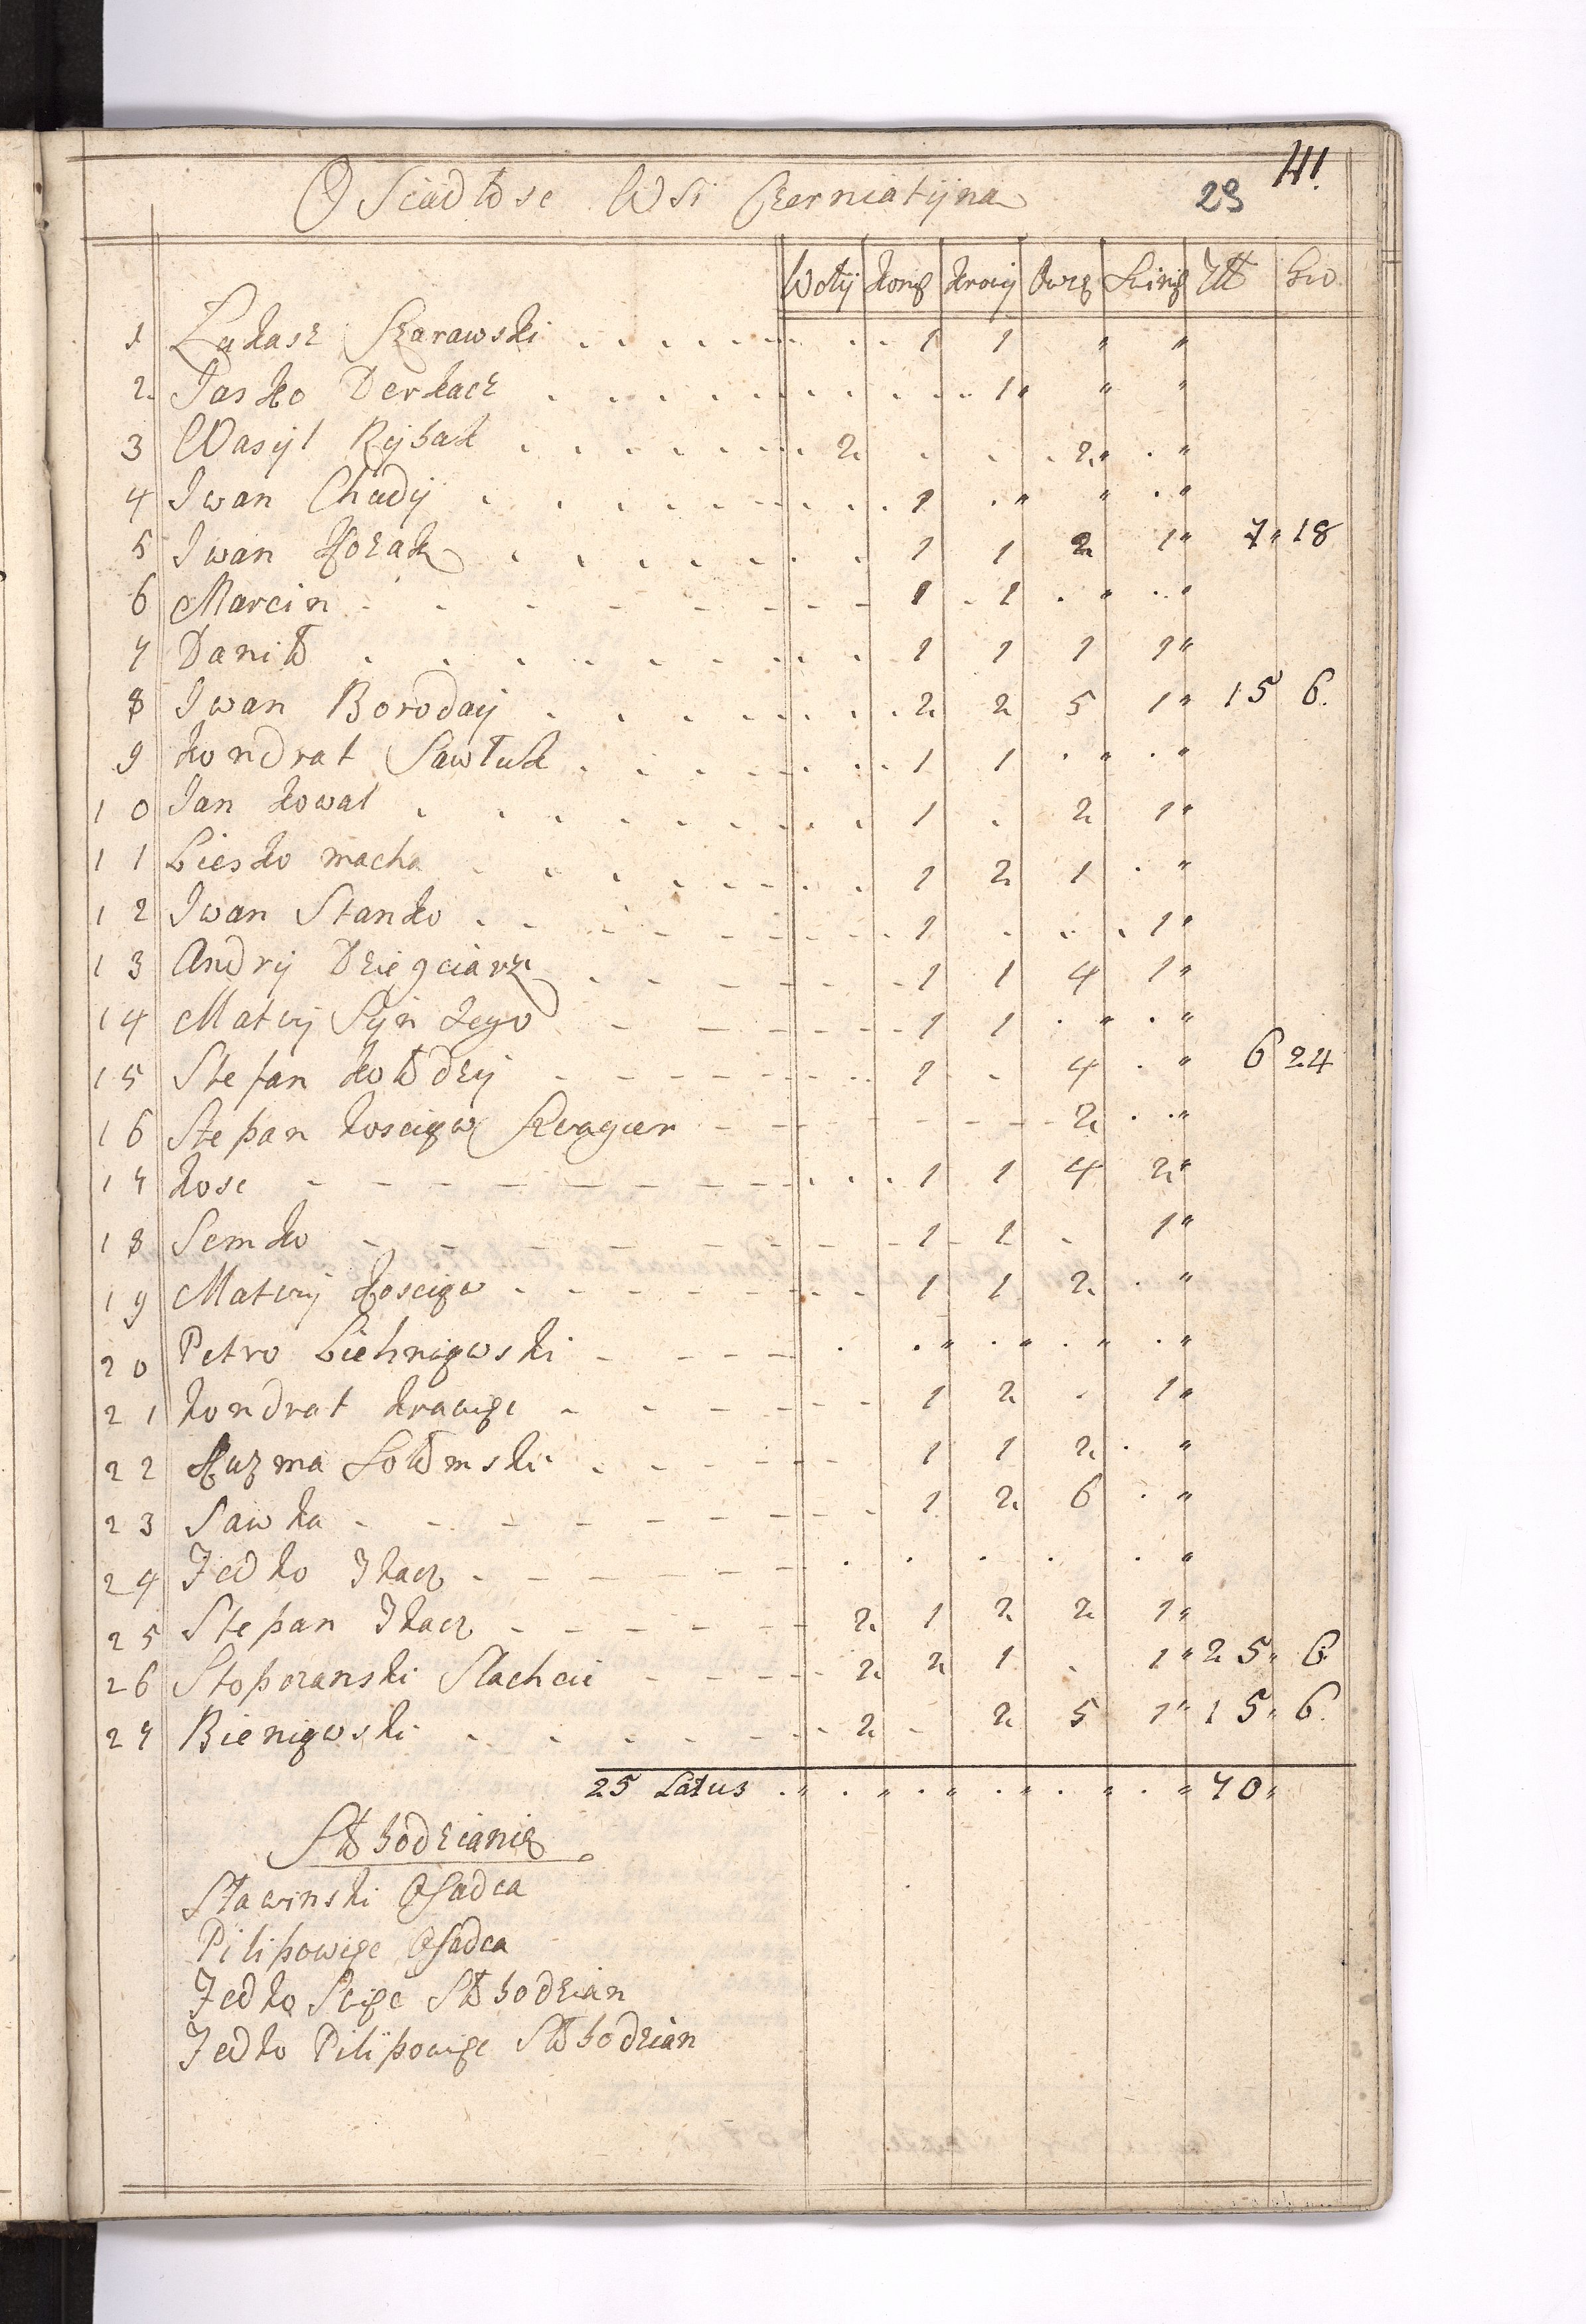 41.
29
Osiadłosc Wsi Czerniatyna
Woły Konie Krowy Owce Swinie Złł Gro
1 Łukasz Czarawski 1 1 " "
2. Pasko Derkacz 1 " " "
3 Wasyl Rybak 2 . . 2 " . "
4 Iwan Chudy 1 . " " . "
5 Iwan Kozak 1 1 2 1 " 7 " 18
6 Marcin 1 1 . " . "
7 Daniło 1 1 1 1 "
8 Iwan Boroday 2 2 5 1 " 15 6.
9 Kondrat Sawłuk 1 1 . " . "
10 Jan Kowal 1 . 2 1 "
11 Liesko macha 1 2 1 . "
12 Iwan Stanko 1 . . 1 "
13 Andrij Dziegciarz 1 1 4 1 "
14 Matwij Syn Jego 1 1 . " . "
15 Stefan Kołodzij 1 - 4 . " 6 24
16 Stepan Kosciew Szwagier 2 . . "
17 Kosc 1 1 4 2 "
18 Semko 1 1 . 1 "
19 Matwij Kosciew 1 1 2 . "
20 Petro Liehniewski . . " . " . " . "
21 Kondrat Krawiec 1 2 . 1 "
22 Kuzma Sołomski 1 1 2 . "
23 Sawka 1 2 6 . "
24 Fedko Tkacz . . . . . "
25 Stepan Tkacz 2 1 2 2 1 "
26 Stopczanski Slachcic 2 2 1 . 1 " 25 " 6
27 Bieniewski 2 - 2 5 1 " 15 " 6.
25 Latus . " . " . " . " . " . " 70 "
Słobodzianie
Sławinski Osadca
Pilipowiec Osadca
Fedko Swiec Słobodzian
Fedko Pilipowiec Słobodzian